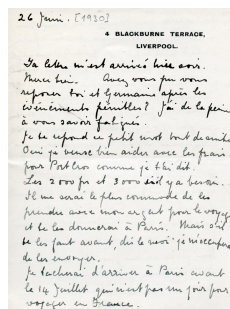 26 Juin. [1930]
4 BLACKBURNE TERRACE,
LIVERPOOL.
Ta lettre m'est arrivée hier soir.
Merci bien. Avez vous pu vous
reposer toi et Germaine après les
événements pénibles? J'ai de la peine
à vous savoir fatigués.
Je te réponds ce petit mot tout de suite
Oui je pense bien aider avec les frais
pour Port Cros comme je t'ai dit.
Les 2000 frs et 3000 si il y a besoin.
Il me serai le plus commode de les
prendre avec mon argent pour le voyage
et te les donnerai à Paris. Mais s'il
te les faut avant, dis le moi je m'occuperai
de les envoyer.
Je tacherai d'arriver à Paris avant
le 14 Juillet qui n'est pas un jour pour
voyager en France.